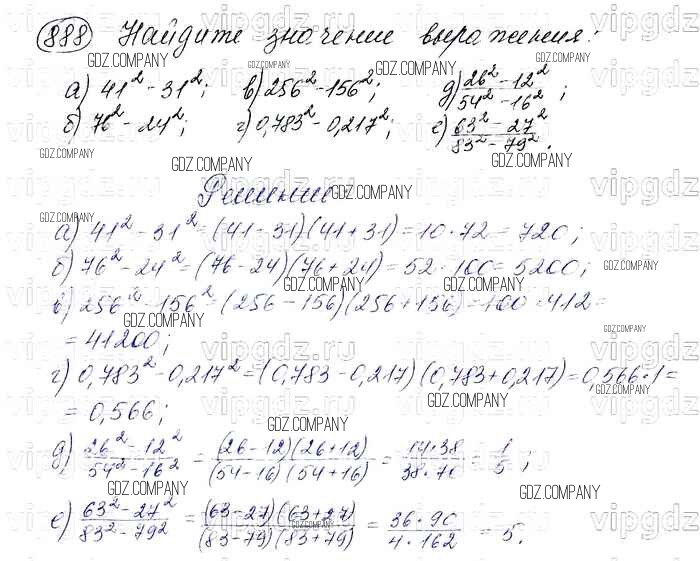 888 Найдите значение выражения:
а) 41² - 31²; в) 256² - 156²; д) (26² - 12²)/(54² - 16²);
б) 76² - 24²; г) 0,783² - 0,217²; е) (63² - 27²)/(83² - 79²).
Решение
а) 41² - 31² = (41 - 31)(41 + 31) = 10 · 72 = 720;
б) 76² - 24² = (76 - 24)(76 + 24) = 52 · 100 = 5200;
в) 256² - 156² = (256 - 156)(256 + 156) = 100 · 412 =
= 41200;
г) 0,783² - 0,217² = (0,783 - 0,217)(0,783 + 0,217) = 0,566 · 1 =
= 0,566;
д) (26² - 12²)/(54² - 16²) = (26 - 12)(26 + 12)/(54 - 16)(54 + 16) = 14 · 38/38 · 70 = 1/5;
е) (63² - 27²)/(83² - 79²) = (63 - 27)(63 + 27)/(83 - 79)(83 + 79) = 36 · 90/4 · 162 = 5.
GDZ.COMPANY
vipgdz.ru